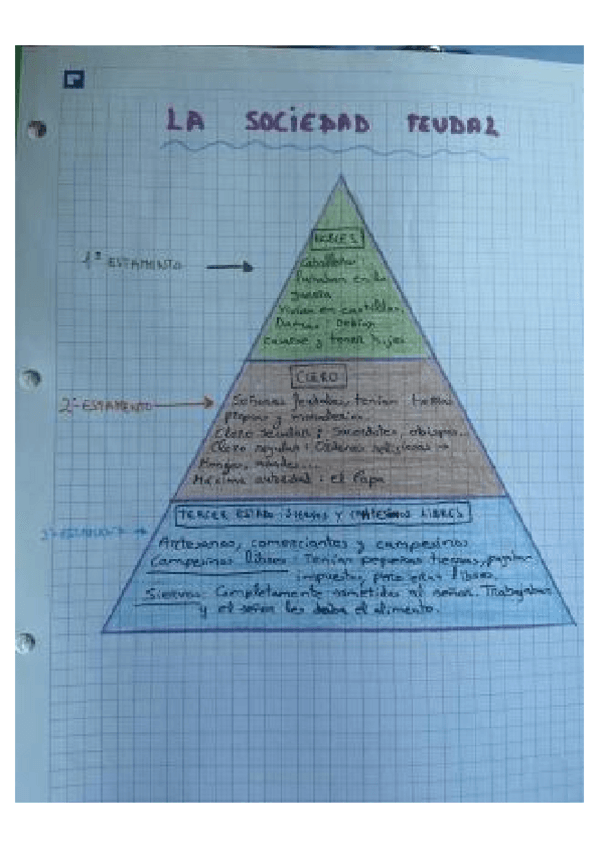 LA SOCIEDAD FEUDAL
1º ESTAMENTO
NOBLES
Caballeros:
luchaban en la
guerra
Vivían en castillos.
Damas: Debían
casarse y tener hijos
2º ESTAMENTO
CLERO
Señores feudales, tenían tierras
propias y
Clero secular: Sacerdotes, obispos...
Clero regular: Ordenes religiosas →
Monjes,
Máxima autoridad: el Papa
3º ESTAMENTO
TERCER ESTADO: SIERVOS Y CAMPESINOS LIBRES
Artesanos, comerciantes y campesinos
Campesinos libres: Tenían pequeñas tierras, pagaban
impuestos, pero eran libres.
Siervos: Completamente sometidos al señor. Trabajaban
y el señor les daba el alimento.